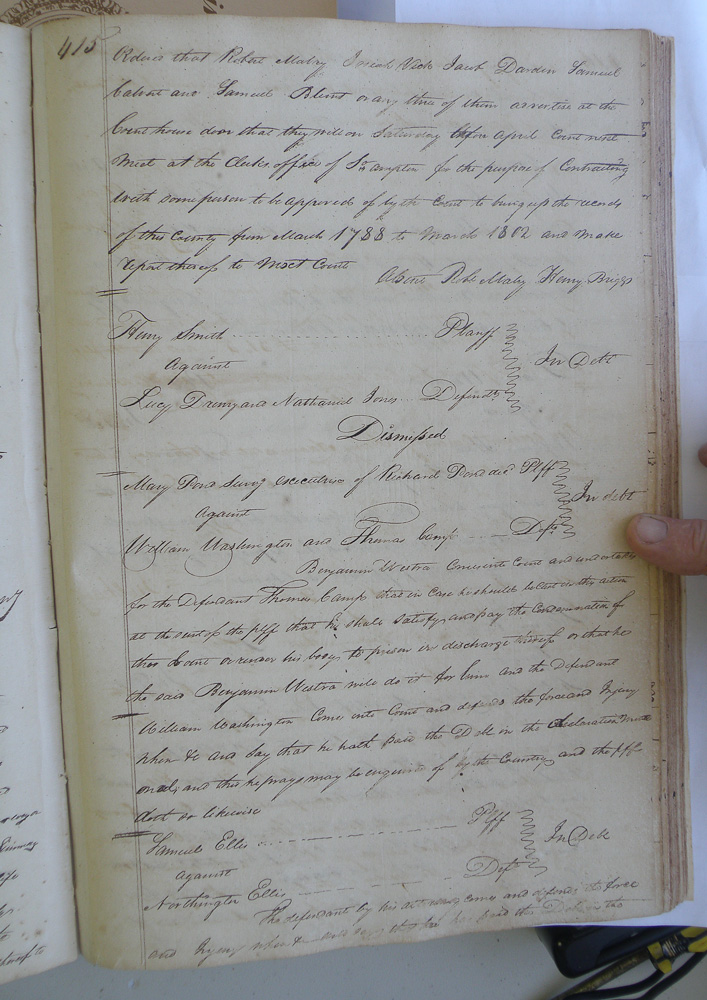 415
Orders that Robert Mabry Josiah Vick Jacob Darden Samuel
Calvert and Samuel Blunt or any three of them advertise at the
Court house door that they will on Saturday before April Court next
meet at the Clerks office of So. ampton for the purpose of Contracting
with some person to be approved of by the Court to bring up the records
of this County from March 1788 to March 1802 and make
report thereof to next Court
Absent Robt Mabry Henry Briggs
Henry Smith Plantff
against In Debt
Lucy Drewry and Nathaniel Jones Defendts
Dismissed
Mary Pond Survg executrix of Richard Pond decd Plff
against In debt
William Washington and Thomas Camp Defts
Benjamin Westra Comes into Court and undertakes
for the Defendant Thomas Camp that in Case he should be cast in this action
at the suit of the plff that he shall satisfy and pay the Condemnation of
the Court or render his body to prison in discharge thereof or that he
the said Benjamin Westra will do it for him and the Defendant
William Washington Comes into Court and defends the force and Injury
when &c and say that he hath paid the Debt in the declaration menti
oned, and this he prays may be enquired of by the Country and the plff
doth so likewise
Samuel Ellis Plff
against In Debt
Northington Ellis Deft
The defendant by his attorney comes and defends the force
and Injury when &c and says that he has paid the Debt in the